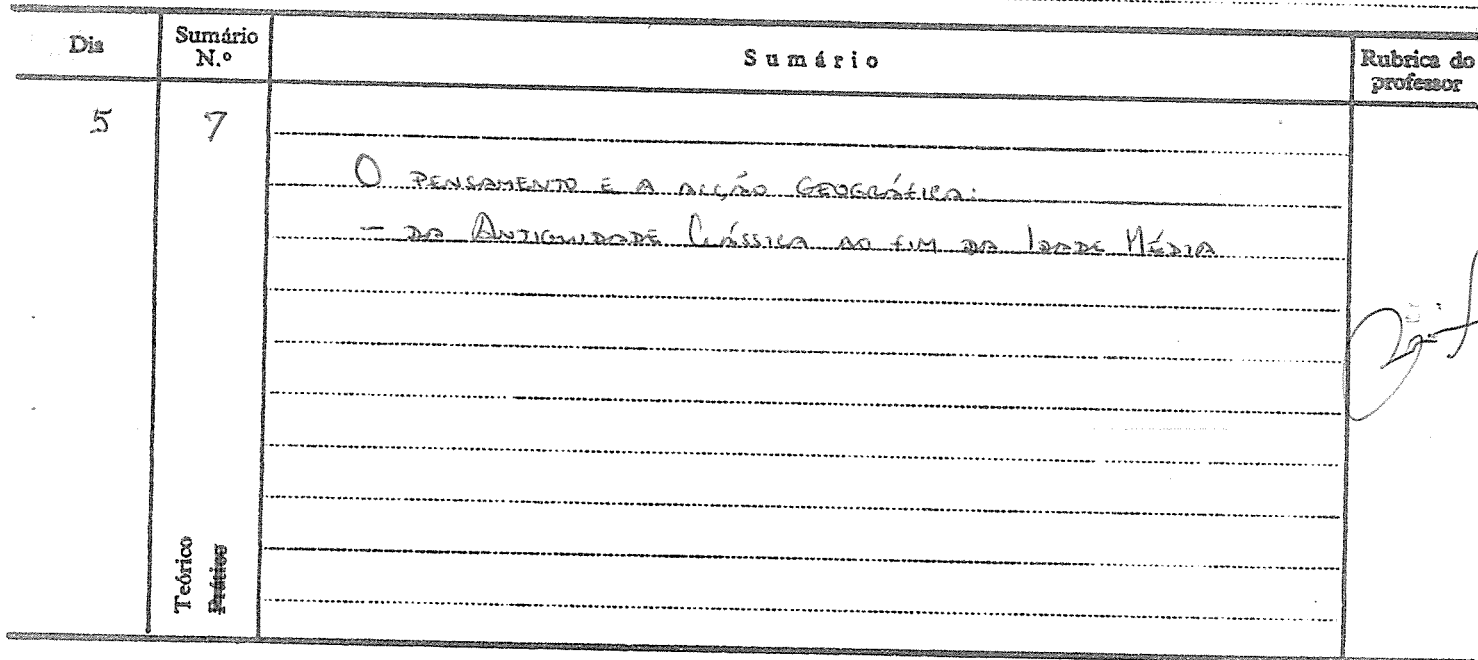 Dia
Sumário N.º
Sumário
Rubrica do professor
5
7
O PENSAMENTO E A ACÇÃO GEOGRÁFICA:
- DA ANTIGUIDADE CLÁSSICA AO FIM DA IDADE MÉDIA
Teórico
Prático